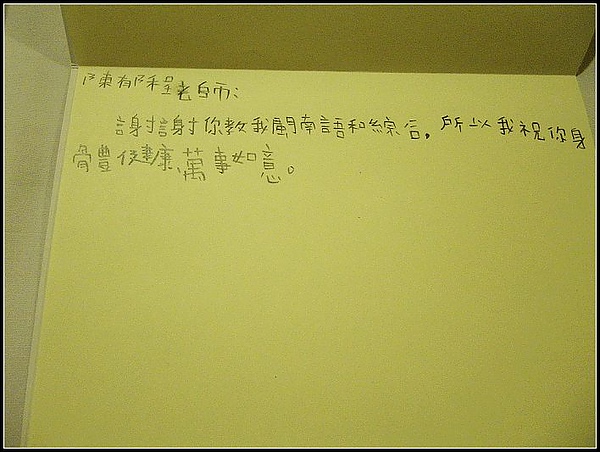 陳郁程老師:
謝謝你教我閩南語和綜合,所以我祝你身
體健康,萬事如意。